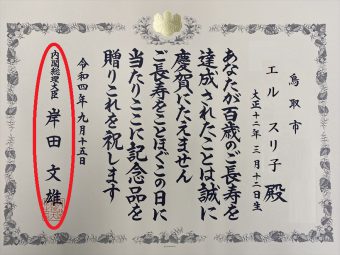 鳥取市
エル スリ子 殿
大正十二年 三月十二日生
あなたが百歳のご長寿を
達成されたことは誠に
慶賀にたえません
ご長寿をことほぐこの日に
当たりここに記念品を
贈りこれを祝します
令和四年九月十五日
内閣総理大臣 岸田 文雄